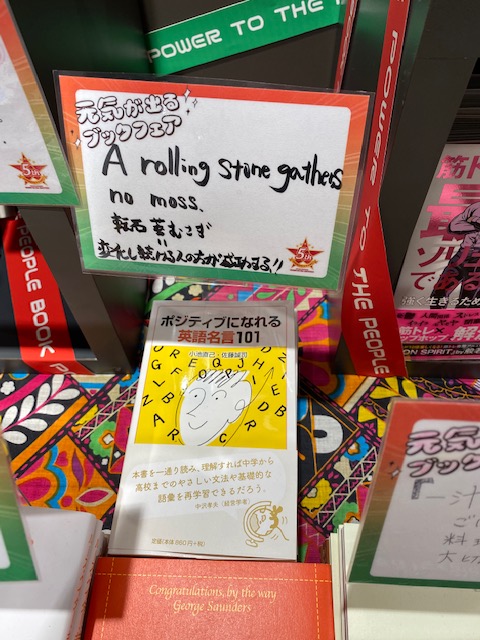 POWER TO THE
元気が出る
ブックフェア
A rolling stone gathers
no moss.
転石苔むさず
変化し続ける人の方が
5th
5th
POWER TO THE PEOPLE
PEOPLE BOOK
ポジティブになれる
英語名言101
小池直己・佐藤誠司
本書を一通り読み、理解すれば中学から
高校までのやさしい文法や基礎的な
語彙を再学習できるだろう。
中沢孝夫（経営学者）
定価（本体860円+税）
Congratulations, by the way
George Saunders
筋ト
強く生きるため
ON SPIRIT
元気
ブック
一汁